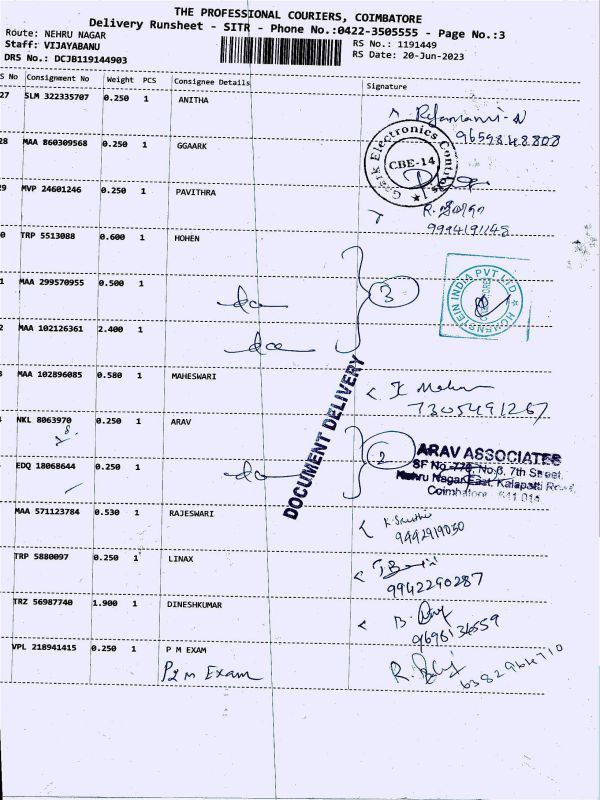 THE PROFESSIONAL COURIERS, COIMBATORE
Delivery Runsheet - SITR - Phone No.:0422-3505555 - Page No.:3
Route: NEHRU NAGAR
RS No.: 1191449
Staff: VIJAYABANU
RS Date: 20-Jun-2023
DRS No.: DCJB119144903
S No Consignment No Weight PCS Consignee Details Signature
27 SLM 322335707 0.250 1 ANITHA
9659848808
28 MAA 860309568 0.250 1 GGAARK
Electronics Controls
CBE-14
29 MVP 24601246 0.250 1 PAVITHRA
R.
9994191145
0 TRP 5513088 0.600 1 HOHEN
HOHENSTEIN INDIA PVT LTD
1 MAA 299570955 0.500 1
do
3
2 MAA 102126361 2.400 1
do
3 MAA 102896085 0.580 1 MAHESWARI
7305491267
DOCUMENT DELIVERY
4 NKL 8063970 0.250 1 ARAV
2
ARAV ASSOCIATES
SF No. 778, No.8, 7th Street,
Nehru Nagar East, Kalapatti Road,
Coimbatore - 641 014
EDQ 18068644 0.250 1
do
MAA 571123784 0.530 1 RAJESWARI
9442919050
TRP 5880097 0.250 1 LINAX
9942290287
TRZ 56987740 1.900 1 DINESHKUMAR
9696136559
VPL 218941415 0.250 1 P M EXAM
P2M Exam
6382964710